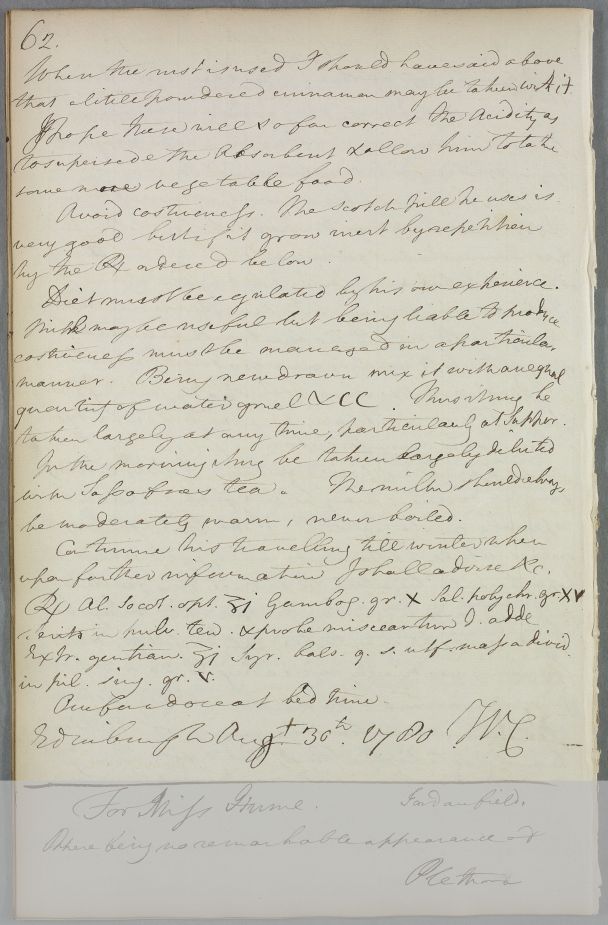 62.
When the rust is used I should have said above
that a little powdered cinnamon may be taken with it
I hope these will so far correct the Acidity as
to supersede the Absorbent & allow him to take
some more vegetable food.
Avoid costiveness. The Scotch pill he uses is
very good but if it grow inert by repetition
try the ℞ ordered below.
Diet must be regulated by his own experience.
Milk may be useful but being liable to produce
costiveness must be managed in a particular
manner. Being new drawn mix it with an equal
quantity of water gruel &CC. Thus it may be
taken largely at any time, particularly at Supper.
In the morning it may be taken largely diluted
with Sassafras tea. The milk should always
be moderately warm, never boiled.
Continue his travelling till winter when
upon farther information I shall advise &c.
℞ Al. Socot. opt. ʒj Gambog. gr. X Sal. polychr. gr. XV
in pulv. ten. & probe misceantur adde
Extr. gentian. ʒj Syr. bals. q. s. utf. massa divid.
in pil. sing. gr. V.
for a dose at bed time.
Edinburgh Augt 30th. 1780. W.C.
For Miss Hume.
There being no remarkable appearance of
Plethora